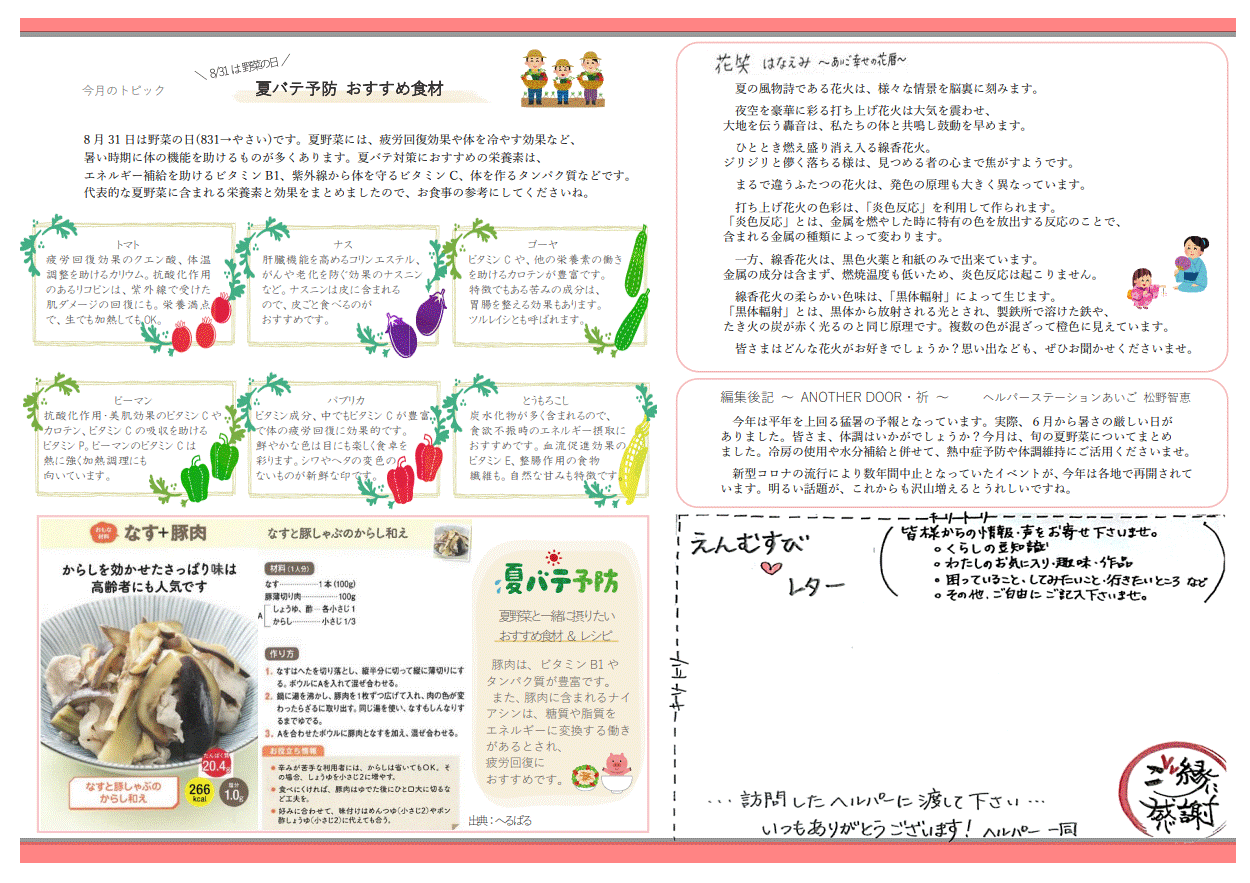 ＼ 8/31 は野菜の日 ／
今月のトピック
夏バテ予防 おすすめ食材
8 月 31 日は野菜の日(831→やさい)です。夏野菜には、疲労回復効果や体を冷やす効果など、
暑い時期に体の機能を助けるものが多くあります。夏バテ対策におすすめの栄養素は、
エネルギー補給を助けるビタミン B1、紫外線から体を守るビタミン C、体を作るタンパク質などです。
代表的な夏野菜に含まれる栄養素と効果をまとめましたので、お食事の参考にしてくださいね。
トマト
疲労回復効果のクエン酸、体温
調整を助けるカリウム。抗酸化作用
のあるリコピンは、紫外線で受けた
肌ダメージの回復にも。栄養満点
で、生でも加熱してもOK。
ナス
肝臓機能を高めるコリンエステル、
がんや老化を防ぐ効果のナスニン
など。ナスニンは皮に含まれる
ので、皮ごと食べるのが
おすすめです。
ゴーヤ
ビタミン C や、他の栄養素の働き
を助けるカロテンが豊富です。
特徴でもある苦みの成分は、
胃腸を整える効果もあります。
ツルレイシとも呼ばれます。
ピーマン
抗酸化作用・美肌効果のビタミン C や
カロテン、ビタミン C の吸収を助ける
ビタミン P。ピーマンのビタミン C は
熱に強く加熱調理にも
向いています。
パプリカ
ビタミン成分、中でもビタミン C が豊富
で体の疲労回復に効果的です。
鮮やかな色は目にも楽しく食卓を
彩ります。シワやヘタの変色の
ないものが新鮮な印です。
とうもろこし
炭水化物が多く含まれるので、
食欲不振時のエネルギー摂取に
おすすめです。血流促進効果の
ビタミン E、整腸作用の食物
繊維も。自然な甘みも特徴です。
おもな材料
なす+豚肉
からしを効かせたさっぱり味は
高齢者にも人気です
たんぱく質
20.4g
266
kcal
塩分
1.0g
なすと豚しゃぶの
からし和え
なすと豚しゃぶのからし和え
材料(1人分)
なす……………1本(100g)
豚薄切り肉…………100g
A しょうゆ、酢…各小さじ1
からし…………小さじ1/3
作り方
1. なすはへたを切り落とし、縦半分に切って縦に薄切りにす
る。ボウルにAを入れて混ぜ合わせる。
2. 鍋に湯を沸かし、豚肉を1枚ずつ広げて入れ、肉の色が変
わったらざるに取り出す。同じ湯を使い、なすもしんなりす
るまでゆでる。
3. Aを合わせたボウルに豚肉となすを加え、混ぜ合わせる。
お役立ち情報
●辛みが苦手な利用者には、からしは省いてもOK。そ
の場合、しょうゆを小さじ2に増やす。
●食べにくければ、豚肉はゆでた後にひと口大に切るな
ど工夫を。
●好みに合わせて、味付けはめんつゆ(小さじ2)やポン
酢しょうゆ(小さじ2)に代えても合う。
夏バテ予防
夏野菜と一緒に摂りたい
おすすめ食材 & レシピ
豚肉は、ビタミン B1 や
タンパク質が豊富です。
また、豚肉に含まれるナイ
アシンは、糖質や脂質を
エネルギーに変換する働き
があるとされ、
疲労回復に
おすすめです。
出典：へるぱる
花笑 はなえみ ～あいご幸せの花暦～
夏の風物詩である花火は、様々な情景を脳裏に刻みます。
夜空を豪華に彩る打ち上げ花火は大気を震わせ、
大地を伝う轟音は、私たちの体と共鳴し鼓動を早めます。
ひととき燃え盛り消え入る線香花火。
ジリジリと儚く落ちる様は、見つめる者の心まで焦がすようです。
まるで違うふたつの花火は、発色の原理も大きく異なっています。
打ち上げ花火の色彩は、「炎色反応」を利用して作られます。
「炎色反応」とは、金属を燃やした時に特有の色を放出する反応のことで、
含まれる金属の種類によって変わります。
一方、線香花火は、黒色火薬と和紙のみで出来ています。
金属の成分は含まず、燃焼温度も低いため、炎色反応は起こりません。
線香花火の柔らかい色味は、「黒体輻射」によって生じます。
「黒体輻射」とは、黒体から放射される光とされ、製鉄所で溶けた鉄や、
たき火の炭が赤く光るのと同じ原理です。複数の色が混ざって橙色に見えています。
皆さまはどんな花火がお好きでしょうか？思い出なども、ぜひお聞かせくださいませ。
編集後記 ～ ANOTHER DOOR・祈 ～ ヘルパーステーションあいご 松野智恵
今年は平年を上回る猛暑の予報となっています。実際、６月から暑さの厳しい日が
ありました。皆さま、体調はいかがでしょうか？今月は、旬の夏野菜についてまとめ
ました。冷房の使用や水分補給と併せて、熱中症予防や体調維持にご活用くださいませ。
新型コロナの流行により数年間中止となっていたイベントが、今年は各地で再開されて
います。明るい話題が、これからも沢山増えるとうれしいですね。
キリトリ
キリトリ
えんむすび
レター
皆様からの情報・声をお寄せ下さいませ。
○くらしの豆知識
○わたしのお気に入り・趣味・作品
○困っていること・してみたいこと・行きたいところ など
○その他、ご自由にご記入下さいませ。
…訪問したヘルパーに渡して下さい…
いつもありがとうございます！ ヘルパー 一同
ご縁に
感謝